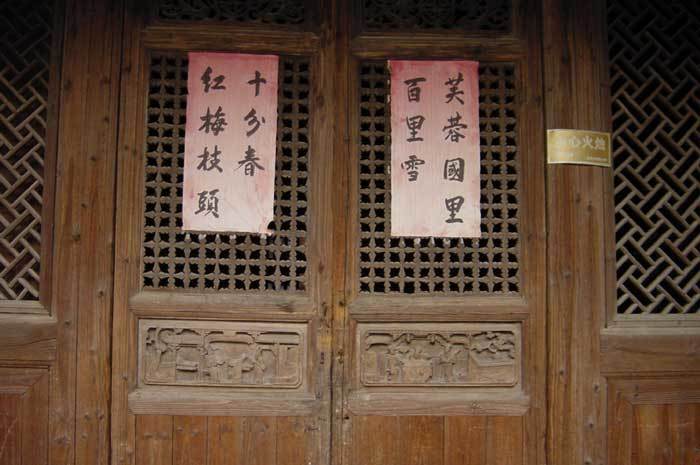 芙蓉國里
百里雪
红梅枝頭
十分春
小心火烛